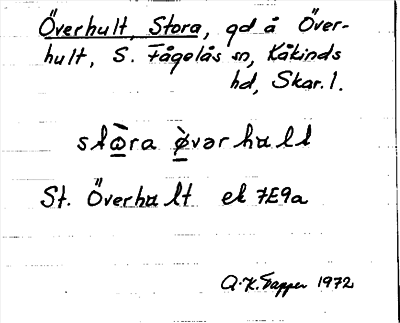 Överhult, Stora, gd å Över-
hult, S. Fågelås sn, Kåkinds
hd, Skar. l.
stὼ̲ra ø̲̀vərhult
St. Överhult ek 7E9a
A.K. Tapper 1972